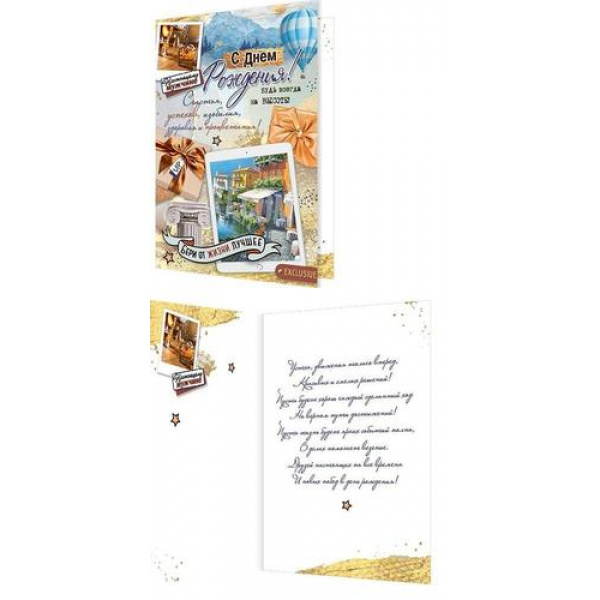 С Днем
Рождения!
Будь всегда
на высоте!
Настоящему
мужчине!
Счастья,
успехов, изобилия,
здоровья и процветания!
VIP
БЕРИ ОТ ЖИЗНИ ЛУЧШЕЕ
EXCLUSIVE
Настоящему
мужчине!
Успеха, движения только вперед,
Красивых и смелых решений!
Пусть будет хорош каждый сделанный ход
На верном пути достижений!
Пусть жизнь будет ярких событий полна,
В делах помогает везенье.
Друзей настоящих на все времена
И новых побед в день рождения!